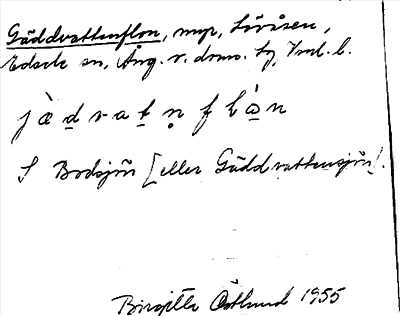 Gäddvattenflon, myr, Lövåsen,
Edsele sn, Ång. v. dom. hg, Vnl. l.
jȁ̀ d̲ v a t̲ n̥ f l ȁ̲ n
S Bodsjön [eller Gäddvattensjön].
Birgitta Östlund 1955